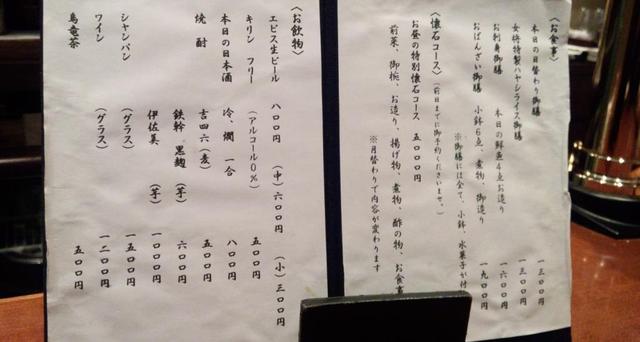 〈お食事〉
本日の日替わり御膳 一三〇〇円
女将特製ハヤシライス御膳 一三〇〇円
お刺身御膳 本日の鮮魚4点お造り 一六〇〇円
おばんざい御膳 小鉢6点、煮物、御造り 一九〇〇円
※御膳には全て、小鉢、水菓子が付
〈懐石コース〉(前日までに御予約くださいませ。)
お昼の特別懐石コース 五〇〇〇円
前菜、御椀、お造り、揚げ物、煮物、酢の物、お食事
※月替わりで内容が変わります
〈お飲物〉
エビス生ビール 八〇〇円 (中)六〇〇円 (小)三〇〇円
キリン フリー (アルコール0%) 五〇〇円
本日の日本酒 冷、燗 一合 八〇〇円
焼酎 吉四六(麦) 五〇〇円
鉄幹 黒麹 (芋) 六〇〇円
伊佐美 (芋) 一〇〇〇円
シャンパン (グラス) 一五〇〇円
ワイン (グラス) 一二〇〇円
烏竜茶 五〇〇円